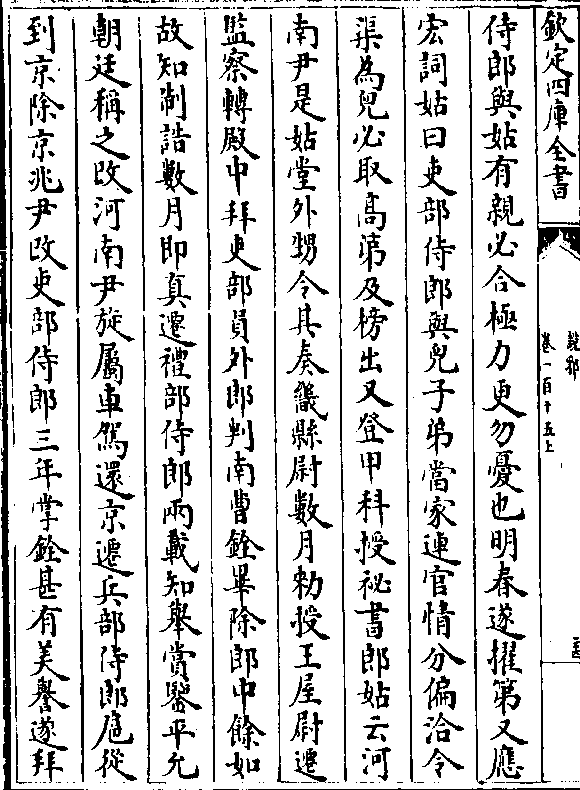 欽定四庫全書
說郛
卷一百十五上
侍郎與姑有親必合極力更勿憂也明春遂擢第又應
宏詞姑曰吏部侍郎與兒子弟當家連官情分偏洽令
渠為兒必取高第及榜出又登甲科授祕書郎姑云河
南尹是姑堂外甥令其奏畿縣尉數月勑授王屋尉遷
監察轉殿中拜吏部員外郎判南曹銓畢除郎中餘如
故知制誥數月即真遷禮部侍郎兩載知舉賞鑒平允
朝廷稱之改河南尹旋屬車駕還京遷兵部侍郎扈從
到京除京兆尹改吏部侍郎三年掌銓甚有美譽遂拜